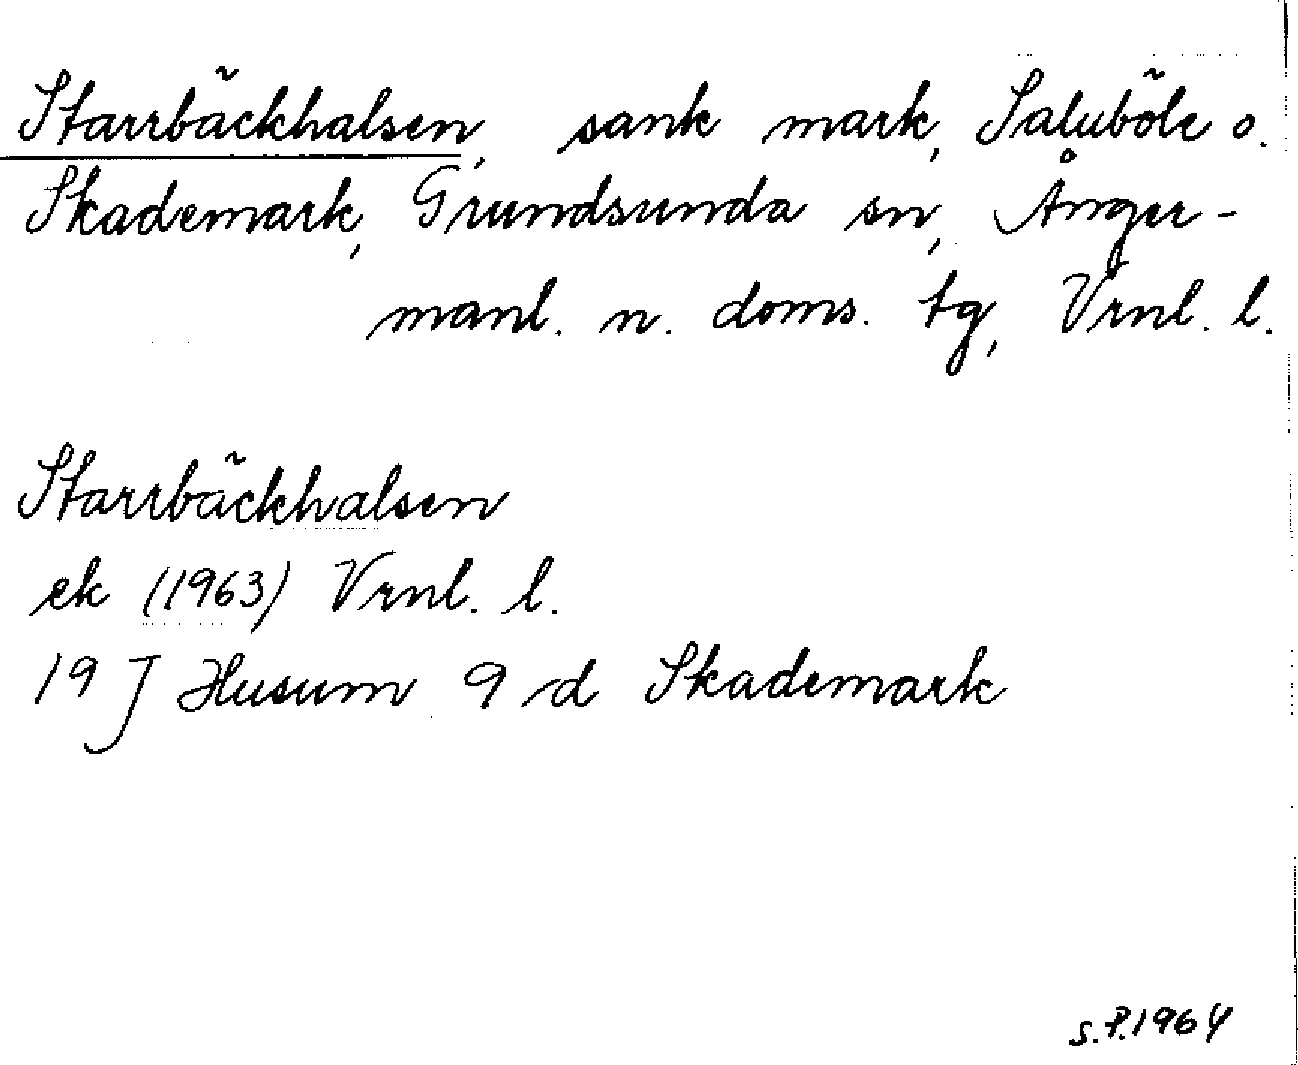 Starrbäckhalsen, sank mark, Saluböle o.
Skademark, Grundsunda sn, Ånger-
manl. n. doms. tg, Vrnl. l.
Starrbäckhalsen
ek (1963) Vrnl. l.
19 J Husum 9 d Skademark
S.P.1964